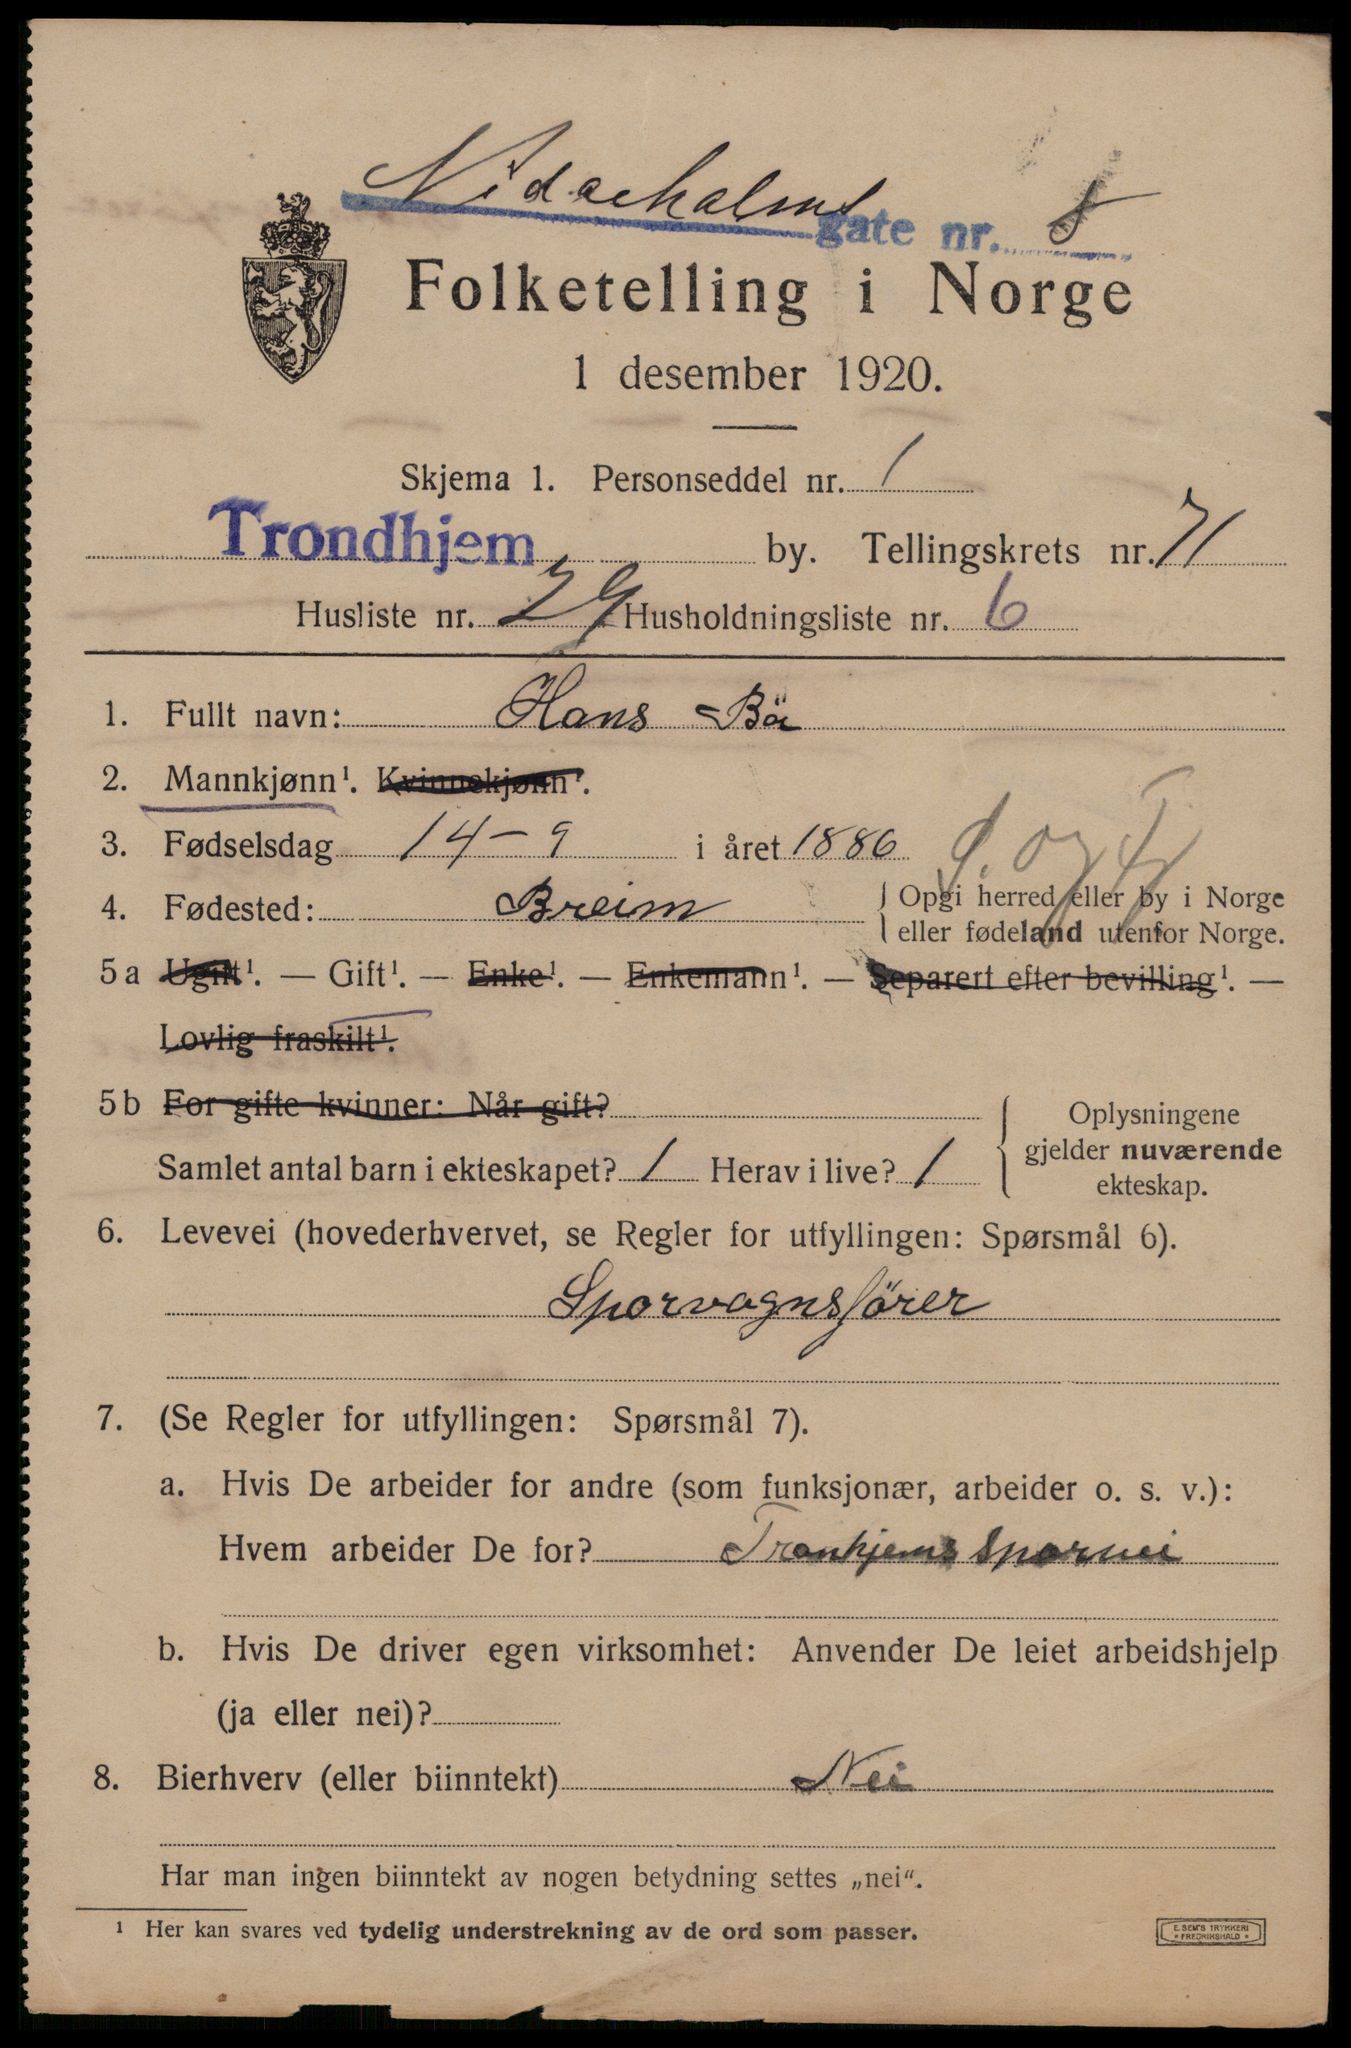 Nidareholms gate nr. 8
Folketelling i Norge
1 desember 1920.
Skjema 1. Personseddel nr. 1
Trondhjem by. Tellingskrets nr. 71
Husliste nr. 29 Husholdningsliste nr. 6
1. Fullt navn: Hans Bö
2. Mannkjønn¹. Kvinnekjønn¹.
3. Fødselsdag 14 - 9 i året 1886
S. og Fj
4. Fødested: Breim { Opgi herred eller by i Norge
eller fødeland utenfor Norge.
5a Ugift¹. — Gift¹. — Enke¹. — Enkemann¹. — Separert efter bevilling¹. —
Lovlig fraskilt¹.
5b For gifte kvinner: Når gift?
Samlet antal barn i ekteskapet? 1 Herav i live? 1
{ Oplysningene
gjelder nuværende
ekteskap.
6. Levevei (hovederhvervet, se Regler for utfyllingen: Spørsmål 6).
Sporvognsförer
7. (Se Regler for utfyllingen: Spørsmål 7).
a. Hvis De arbeider for andre (som funksjonær, arbeider o. s. v.):
Hvem arbeider De for? Tronhjems Sporvei
b. Hvis De driver egen virksomhet: Anvender De leiet arbeidshjelp
(ja eller nei)?
8. Bierhverv (eller biinntekt) Nei
Har man ingen biinntekt av nogen betydning settes „nei“.
¹ Her kan svares ved tydelig understrekning av de ord som passer.
E. SEM'S TRYKKERI
• FREDRIKSHALD •